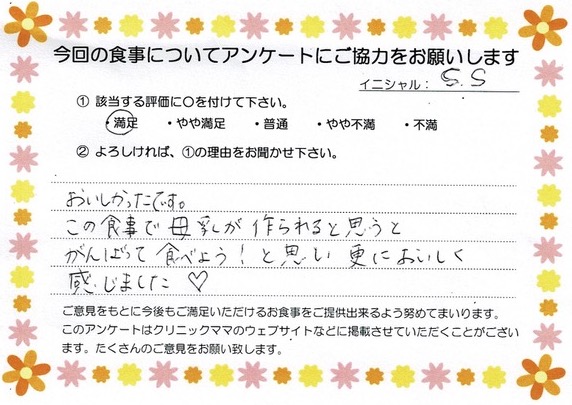 今回の食事についてアンケートにご協力をお願いします
イニシャル： S.S
① 該当する評価に〇を付けて下さい。
・満足 ・やや満足 ・普通 ・やや不満 ・不満
② よろしければ、①の理由をお聞かせ下さい。
おいしかったです。
この食事で母乳が作られると思うと
がんばって食べよう！と思い更においしく
感じました♡
ご意見をもとに今後もご満足いただけるお食事をご提供出来るよう努めてまいります。
このアンケートはクリニックママのウェブサイトなどに掲載させていただくことがござい
ます。たくさんのご意見をお願い致します。